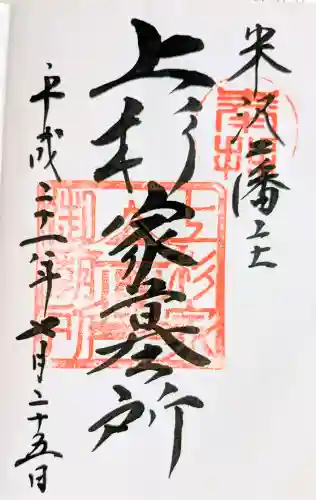 奉拝
米沢藩主
上杉家墓所
上杉家
御廟所
平成二十八年七月二十五日